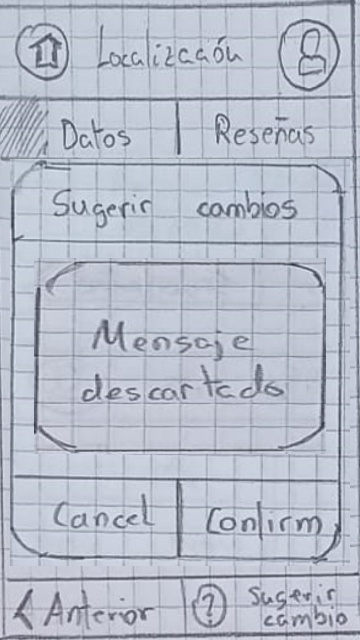 Localización
Datos
Reseñas
Sugerir cambios
Mensaje
descartado
Cancel
Confirm
< Anterior
? Sugerir
cambio